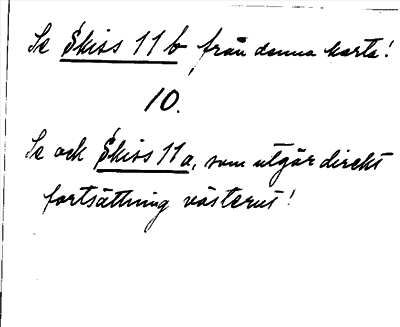 Se Skiss 11b från denna karta!
10.
Se och Skiss 11a, som utgår direkt
fortsättning västerut!